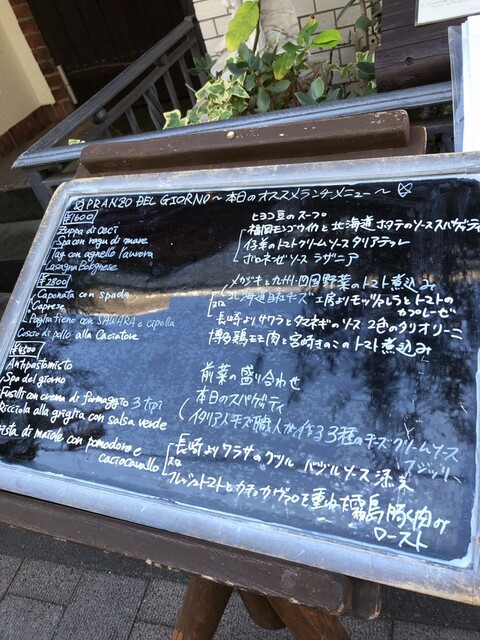 PRANZO DEL GIORNO ～本日のオススメランチメニュー～
¥1600
Zuppa di Ceci
Spa con ragu di mare
Tag con agnello l'aurora
Lasagna Bolognese
¥2800
Caponata con spada
Caprese
Paglia fieno con SAWARA e cipolla
Coscia di pollo alla Caciatore
¥4500
Antipastomisto
Spa del giorno
Fusilli con crema di formaggio 3 tipi
Ricciola alla griglia con salsa verde
ista di maiale con pomodoro e
caciocavallo
ヒヨコ豆のスープ
福岡モンゴウイカと北海道ホタテのソーススパゲティ
仔羊のトマトクリームソースタリアテッレ
ボロネーゼソースラザニア
メカジキと九州・四国野菜のトマト煮込み
北海道チーズ工房よりモッツァレラとトマトの
カプレーゼ
長崎よりサワラとタマネギのソース 2色のタリオリーニ
博多鶏モモ肉と宮崎きのこのトマト煮込み
前菜の盛り合わせ
本日のスパゲティ
イタリア人チーズ職人が作る3種のチーズクリームソース
フジッリ
長崎よりヒラサのグリル バジルソース添え
フレッシュトマトとカチョカヴァロを重ねた霧島豚肉の
ロースト